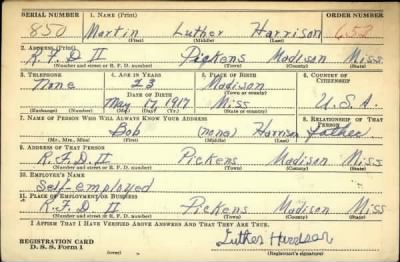 SERIAL NUMBER 1. NAME (Print) ORDER NUMBER
850 Martin Luther Harrison 652
(First) (Middle) (Last)
2. ADDRESS (Print)
R.F.D II Pickens Madison Miss.
(Number and street or R. F. D. number) (Town) (County) (State)
3. TELEPHONE 4. AGE IN YEARS 5. PLACE OF BIRTH 6. COUNTRY OF CITIZENSHIP
None 23 Madison
DATE OF BIRTH (Town or county)
May 17, 1917 Miss U.S.A.
(Exchange) (Number) (Mo.) (Day) (Yr.) (State or country)
7. NAME OF PERSON WHO WILL ALWAYS KNOW YOUR ADDRESS 8. RELATIONSHIP OF THAT PERSON
Bob (none) Harrison father
(Mr., Mrs., Miss) (First) (Middle) (Last)
9. ADDRESS OF THAT PERSON
R.F.D. II Pickens Madison Miss
(Number and street or R. F. D. number) (Town) (County) (State)
10. EMPLOYER'S NAME
Self-employed
11. PLACE OF EMPLOYMENT OR BUSINESS
R.F.D II Pickens Madison Miss
(Number and street or R. F. D. number) (Town) (County) (State)
I AFFIRM THAT I HAVE VERIFIED ABOVE ANSWERS AND THAT THEY ARE TRUE.
REGISTRATION CARD Luther
D. S. S. Form 1 (over) (Registrant's signature)